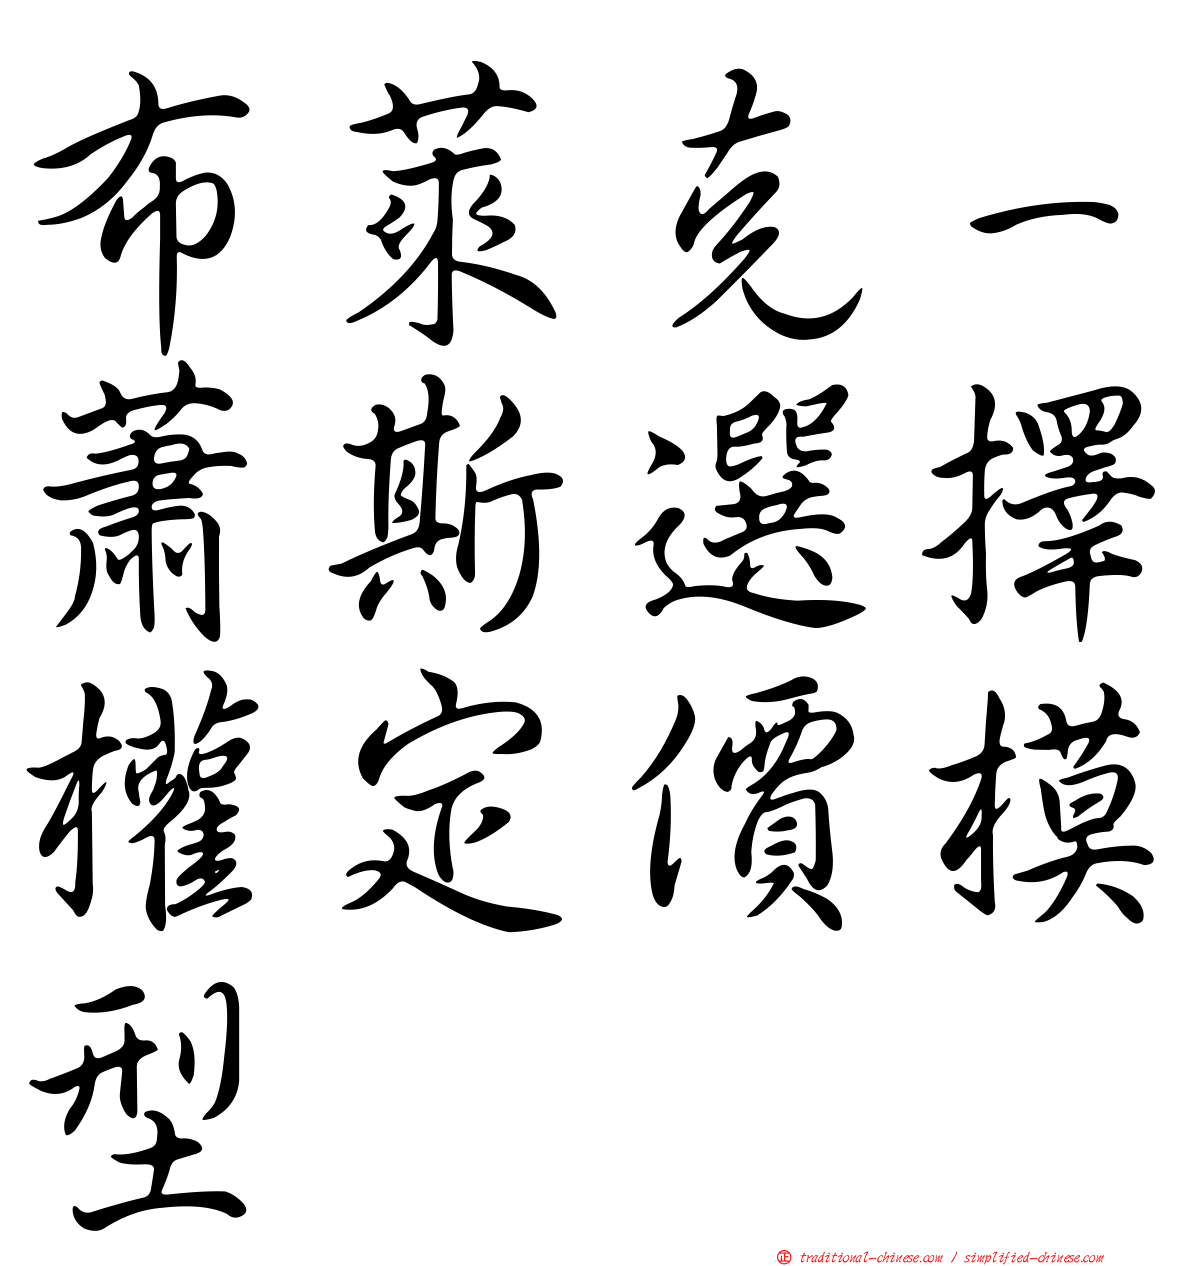 布萊克一
蕭斯選擇
權定價模
型
正 traditional-chinese.com / simplified-chinese.com